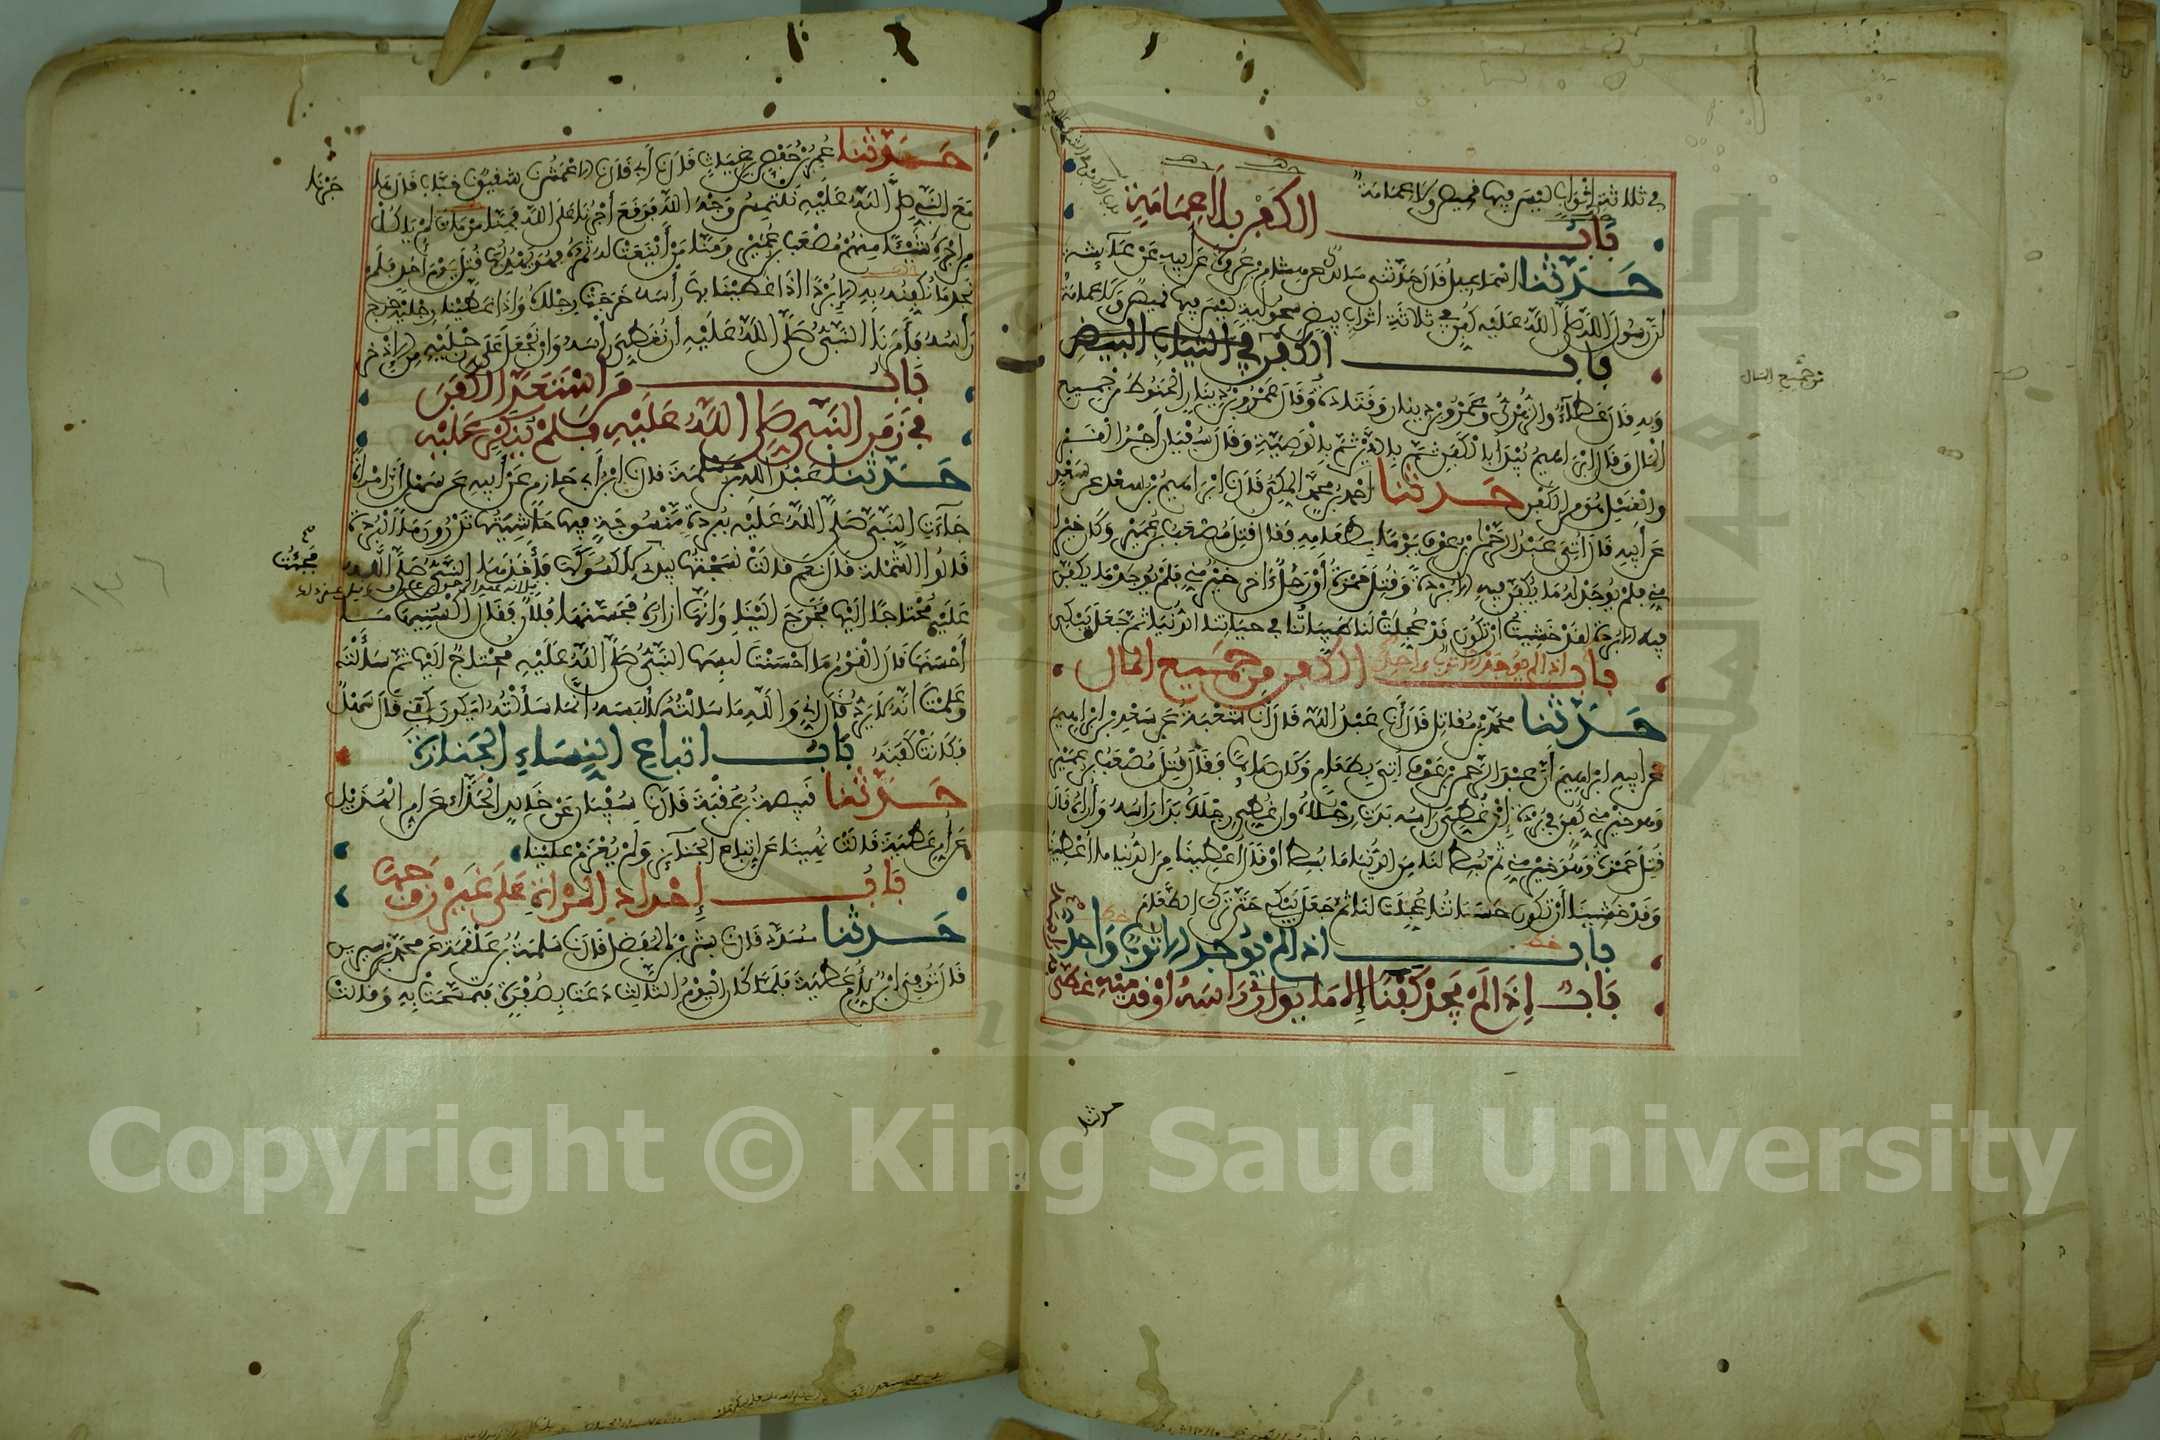 في ثلاثة اثواب ليس فيها قميص ولا عمامة
باب الكفن بلا عمامة
حدثنا اسماعيل قال حدثني مالك عن هشام بن عروة عن أبيه عن عائشة
أن رسول الله صلى الله عليه كفن في ثلاثة اثواب بيض سحولية ليس فيها قميص ولا عمامة
باب الكفن في الثياب البيض
وبه قال عطاء والزهري وعمرو بن دينار وقتادة وقال عمرو بن دينار الحنوط من جميع
المال وقال ابراهيم يبدأ بالكفن ثم بالدين ثم بالوصية وقال سفيان أجر القبر
والغسل هو من الكفن حدثنا احمد بن محمد المكي قال ابراهيم بن سعد عن سعد
عن أبيه قال أتي عبد الرحمان بن عوف يوما بطعامه فقال قتل مصعب بن عمير وكان خيرا
مني فلم يوجد له ما يكفن فيه الا بردة وقتل حمزة أو رجل اخر خير مني فلم يوجد ما يكفن
فيه الا بردة لقد خشيت أن تكون قد عجلت لنا طيباتنا في حياتنا الدنيا ثم جعل يبكي
باب الكفن من جميع المال
اذا لم يوجد الا ثوب واحد
حدثنا محمد بن مقاتل قال عبد الله قال شعبة عن سعد بن ابراهيم
عن ابيه ابراهيم أن عبد الرحمن بن عوف أتي بطعام وكان صائما فقال قتل مصعب بن عمير
وهو خير مني كفن في بردة إن غطي راسه بدت رجلاه وان غطي رجلاه بدا راسه وأراه قال
قتل حمزة وهو خير مني ثم بسط لنا من الدنيا ما بسط او قال أعطينا من الدنيا ما أعطينا
وقد خشينا أن تكون حسناتنا عجلت لنا ثم جعل يبكي حتى ترك الطعام
باب اذا لم يوجد الا ثوب واحد
باب إذا لم يجد كفنا إلا ما يواري راسه او قدميه غطى
حدثنا
من جميع المال
حدثنا عمر بن حفص بن غياث قال أبي قال الاعمش شقيق خباب قال
مع النبي صلى الله عليه نلتمس وجه الله فوقع أجرنا على الله فمنا من مات لم ياكل
من اجره شيئا منهم مصعب بن عمير ومنا من أينعت له ثمرته فهو يهدبها قتل يوم أحد فلم
نجد ما نكفنه به الا بردة اذا غطينا بها رأسه خرجت رجلاه واذا غطينا رجليه خرج
رأسه فأمرنا النبي صلى الله عليه أن نغطي رأسه وان نجعل على رجليه من الاذخر
باب من استعد الكفن
في زمن النبي صلى الله عليه وسلم فلم ينكر عليه
حدثنا عبد الله بن مسلمة قال ابن أبي حازم عن أبيه عن سهل أن امرأة
جاءت النبي صلى الله عليه ببردة منسوجة فيها حاشيتها تدرون ما البردة
قالوا الشملة قال نعم قالت نسجتها بيدي لاكسوكها فأخذها النبي صلى الله
عليه محتاجا اليها فخرج الينا وانها ازاره فحسنها فلان فقال اكسنيها ما
أحسنها قال القوم ما احسنت لبسها النبي صلى الله عليه محتاج اليها ثم سألته
وعلمت انه لا يرد قال إني والله ما سألته لألبسه انما سألته لتكون كفني قال سهل
فكانت كفنه باب اتباع النساء الجنازة
حدثنا قبيصة بن عقبة قال سفيان عن خالد الحذاء عن ام الهذيل
عن أم عطية قالت نهينا عن اتباع الجنائز ولم يعزم علينا
باب إحداد المرأة على غير زوجها
حدثنا مسدد قال بشر بن المفضل قال سلمة بن علقمة عن محمد بن سيرين
قال توفي ابن لأم عطية فلما كان اليوم الثالث دعت بصفرة فتمسحت به وقالت
فجئت
Copyright © King Saud University